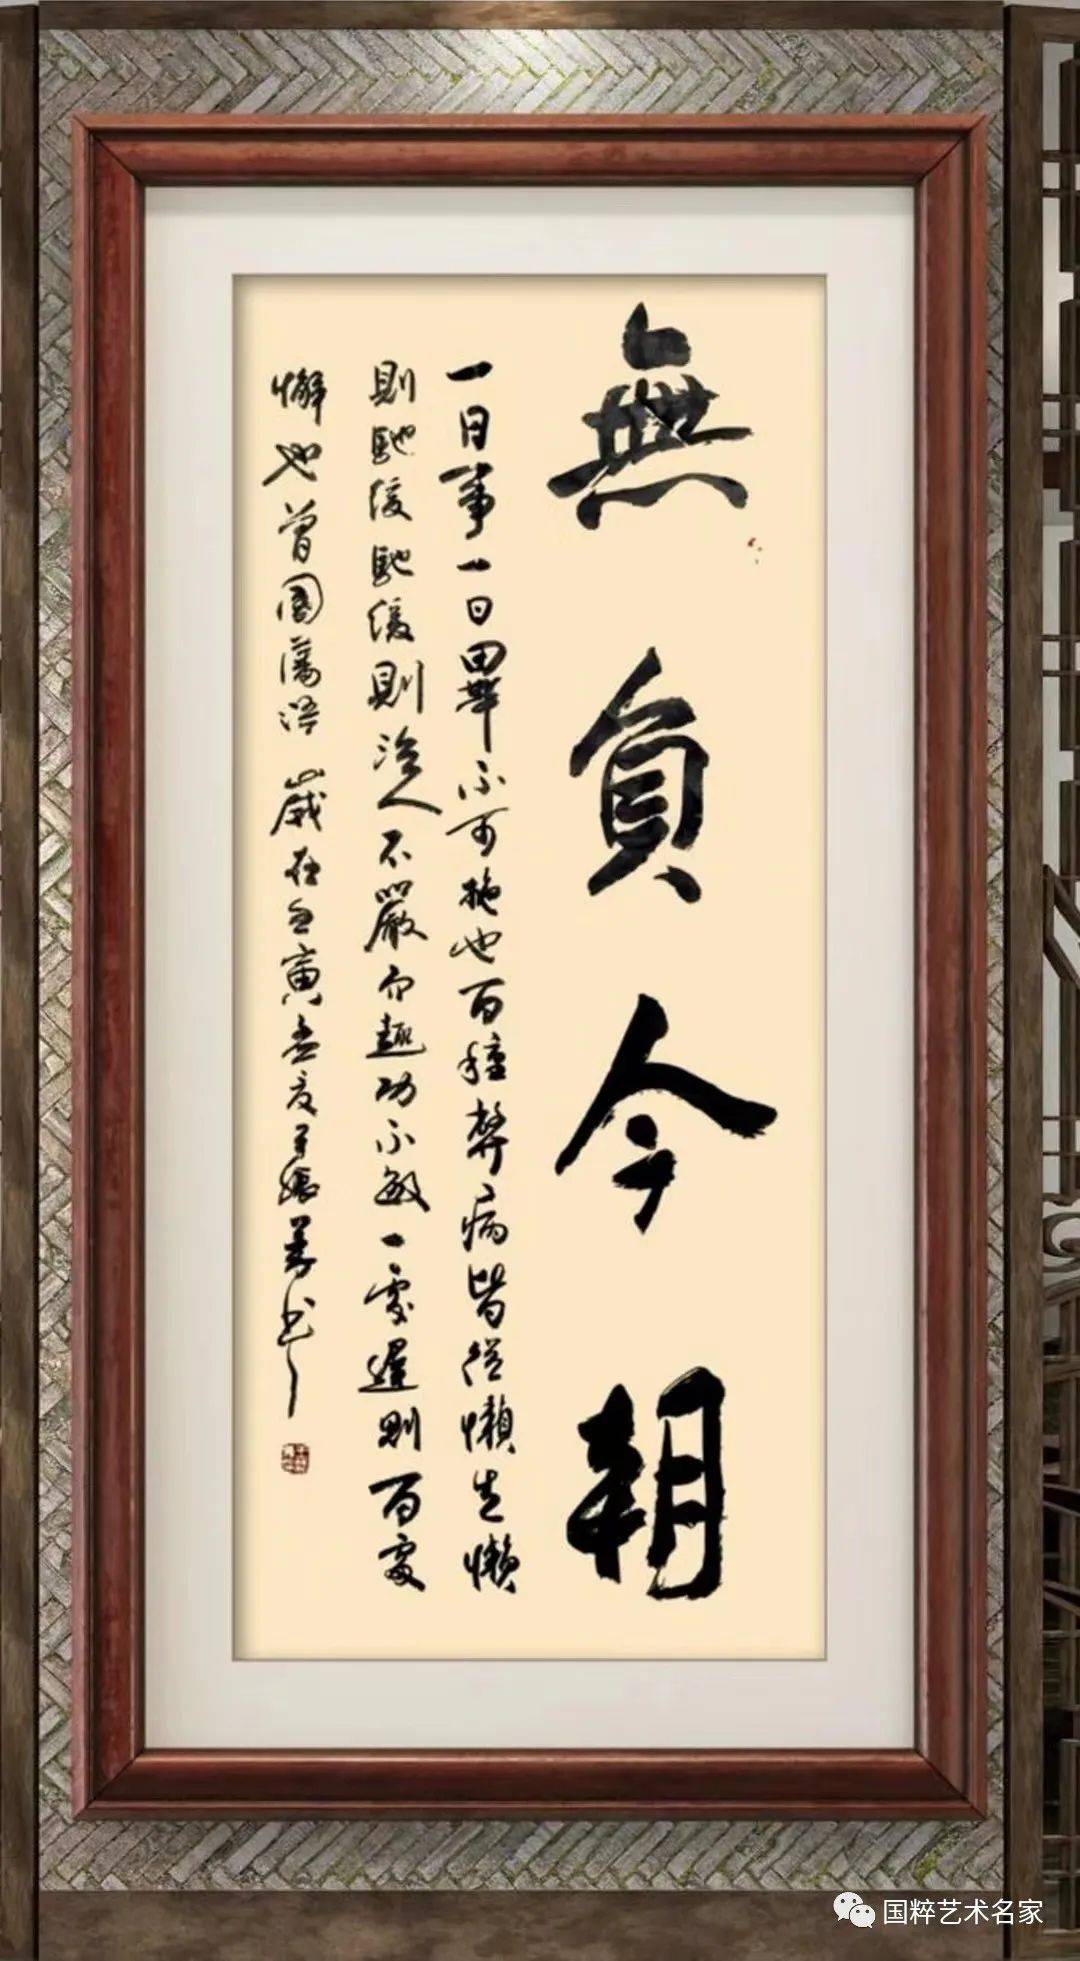 無負今朝
一日事一日畢不可拖也百種弊病皆從懶生懶
則馳緩馳緩則治人不嚴而趣功不敏一處遲則百處
懈也曾國藩語 歲在壬寅孟夏王振書
国粹艺术名家